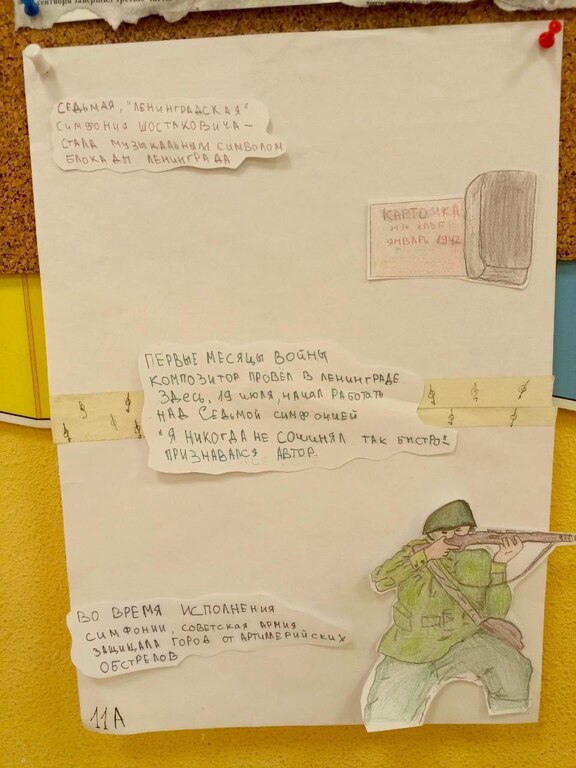 сентября завершил третью часть
СЕДЬМАЯ, "ЛЕНИНГРАДСКАЯ"
СИМФОНИЯ ШОСТАКОВИЧА –
СТАЛА МУЗЫКАЛЬНЫМ СИМВОЛОМ
БЛОКАДЫ ЛЕНИНГРАДА
КАРТОЧКА
НА ХЛЕБ
ЯНВАРЬ 1942
ПЕРВЫЕ МЕСЯЦЫ ВОЙНЫ
КОМПОЗИТОР ПРОВЁЛ В ЛЕНИНГРАДЕ.
ЗДЕСЬ, 19 ИЮЛЯ, НАЧАЛ РАБОТАТЬ
НАД СЕДЬМОЙ СИМФОНИЕЙ
"Я НИКОГДА НЕ СОЧИНЯЛ ТАК БЫСТРО",
ПРИЗНАВАЛСЯ АВТОР.
ВО ВРЕМЯ ИСПОЛНЕНИЯ
СИМФОНИИ, СОВЕТСКАЯ АРМИЯ
ЗАЩИЩАЛА ГОРОД ОТ АРТИЛЕРИЙСКИХ
ОБСТРЕЛОВ
11А